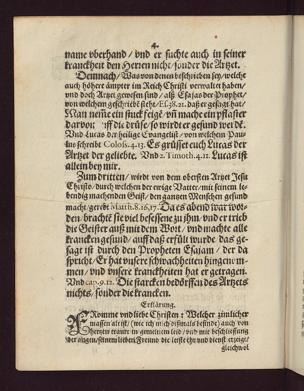 4.
name vberhand / vnd er suchte auch in seiner
kranckheit den Herren nicht / sonder die Artzet.
Demnach / Was von denen beschrieben sey / welche
auch höhere ämpter im Reich Christi verwaltet haben /
vnd doch Artzet gewesen sind / alß Esajas der Prophet /
von welchem geschriebē steht / Es.38.21. daß er gesagt hat /
Man neme ein stuck feigē / vn̄ mache ein pflaster
darvon auff die drüß / so wirdt er gesund werdē.
Vnd Lucas der heilige Evangelist / von welchem Pau-
lus schreibt Coloss. 4.14. Es grüsset euch Lucas der
Artzet der geliebte. Vnd 2. Timoth. 4.11. Lucas ist
allein bey mir.
Zum dritten / wirdt von dem obersten Artzet Jesu
Christo / durch welchen der ewige Vatter / mit seinem le-
bendig machenden Geist / den gantzen Menschen gesund
macht / geredt Matth.8.16.17. Da es abend war wor-
den / brachtē sie viel besessene zu jhm / vnd er trieb
die Geister auß mit dem Wort / vnd machte alle
krancken gesund / auff daß erfült wurde das ge-
sagt ist durch den Propheten Esajam / der da
spricht / Er hat vnsere schwachheiten hingenom-
men / vnd vnsere kranckheiten hat er getragen.
Vnd cap. 9.12. Die starcken bedörffen des Artzets
nichts / sonder die krancken.
Erklärung.
FRomme vnd liebe Christen: Welcher zimlicher
massen alt ist / (wie ich mich dißmals befinde) auch von
hertzen traurt in gemeinem leid / vnd mit beschliessung
der augen / seinem lieben Freund die letste ehr vnd dienst erzeigt /
gleichwol